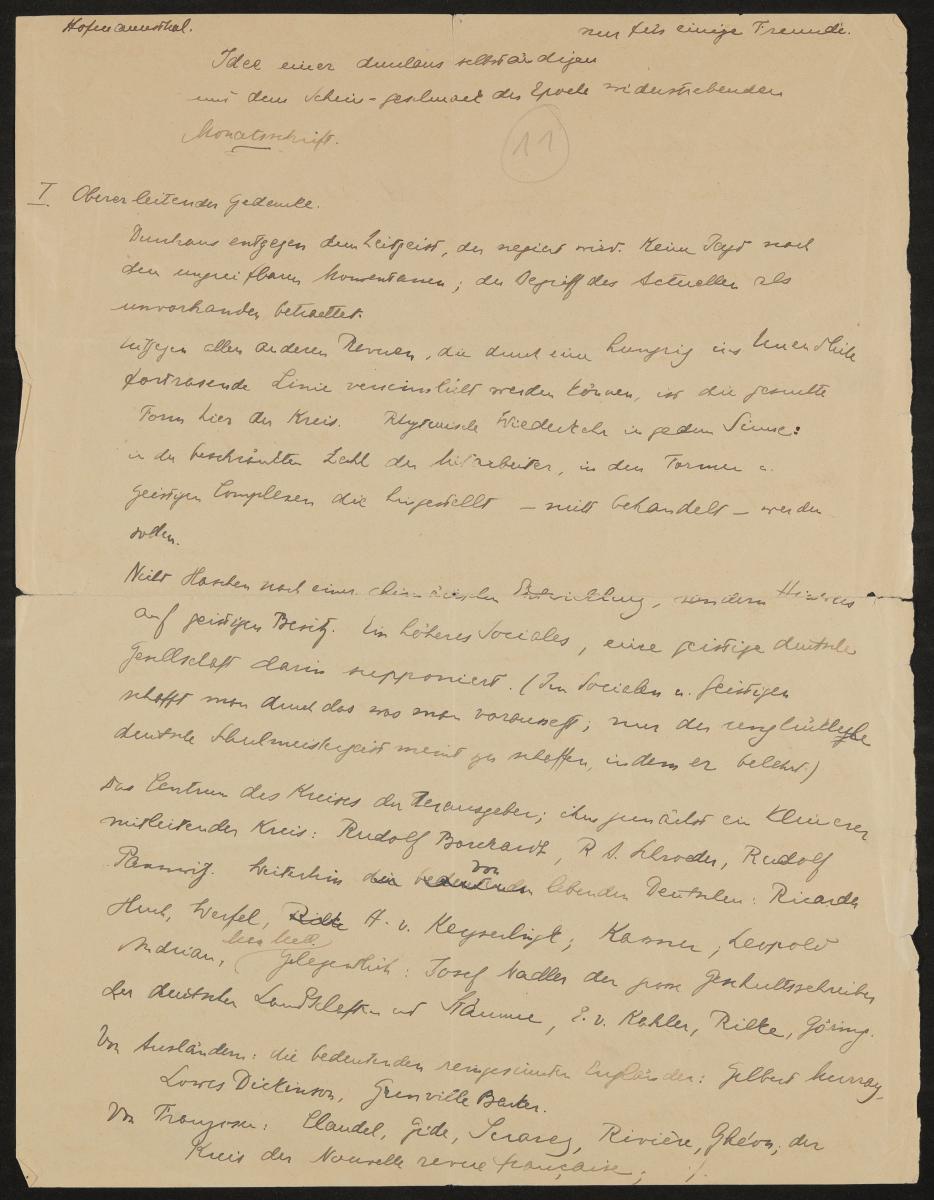 Hofmannsthal.
nur für einige Freunde.
Idee einer durchaus selbständigen
und dem Schein-geschmack der Epoche widerstrebenden
Monatsschrift.
11
I. Oberer leitender Gedanke.
Durchaus entgegen dem Zeitgeist, der negiert wird. Keine Jagd nach
dem ungreifbaren Momentanen; der Begriff des Actuellen als
unvorhanden betrachtet.
entgegen allen anderen Revuen, die durch eine hungrig ins Unendliche
fortrasende Linie versinnlicht werden können, ist die gesuchte
Form hier der Kreis. Rhytmische Wiederkehr in jedem Sinne:
in der beschränkten Zahl der Mitarbeiter, in den Formen u.
geistigen Complexen die hingestellt – nicht behandelt – werden
sollen.
Nicht Haschen nach einer chimärischen Entwicklung, sondern Hinweis
auf geistigen Besitz. Ein höheres Sociales, eine geistige deutsche
Gesellschaft darin supponiert. (Im Socialen u. Geistigen
schafft man durch das was man voraussetzt; nur der unglückliche
deutsche Schulmeistergeist meint zu schaffen, indem er belehrt.)
Das Centrum des Kreises der Herausgeber; ihm zunächst ein kleinerer
mitleitender Kreis: Rudolf Borchardt, R A. Schroder, Rudolf
Pannwitz. Weiterhin von lebenden Deutschen: Ricarda
Huch, Werfel, Rilke H. v. Keyserlingk; Kassner, Leopold
Andrian, Max Mell. Gelegentlich: Josef Nadler der grosse Geschichtsschreiber
der deutschen Landschaften und Stämme, E. v. Kahler, Rilke, Göring.
Von Ausländern: die bedeutenden reingesinnten Engländer: Gilbert Murray,
Lowes Dickinson, Granville Barker.
Von Franzosen: Claudel, Gide, Suarez, Rivière, Ghéon, der
Kreis der Nouvelle revue française;